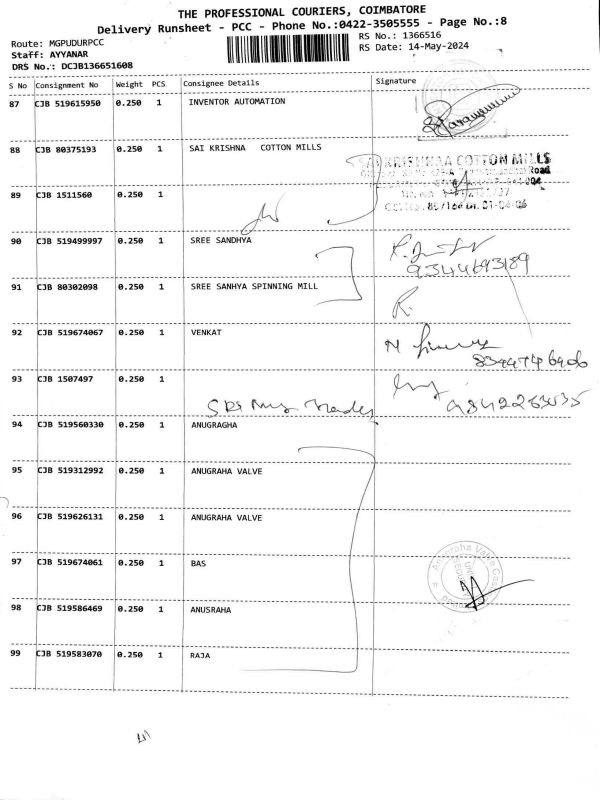 THE PROFESSIONAL COURIERS, COIMBATORE
Delivery Runsheet - PCC - Phone No.:0422-3505555 - Page No.:8
Route: MGPUDURPCC
RS No.: 1366516
Staff: AYYANAR
RS Date: 14-May-2024
DRS No.: DCJB136651608
S No Consignment No Weight PCS Consignee Details Signature
87 CJB 519615950 0.250 1 INVENTOR AUTOMATION
88 CJB 80375193 0.250 1 SAI KRISHNA COTTON MILLS
SAI KRISHNAA COTTON MILLS
Road
89 CJB 1511560 0.250 1
01-04-06
90 CJB 519499997 0.250 1 SREE SANDHYA
9344693189
91 CJB 80302098 0.250 1 SREE SANHYA SPINNING MILL
R.
92 CJB 519674067 0.250 1 VENKAT
8344746906
93 CJB 1507497 0.250 1
9842263035
94 CJB 519560330 0.250 1 ANUGRAGHA
95 CJB 519312992 0.250 1 ANUGRAHA VALVE
96 CJB 519626131 0.250 1 ANUGRAHA VALVE
97 CJB 519674061 0.250 1 BAS
Anugraha Valve
98 CJB 519586469 0.250 1 ANUSRAHA
99 CJB 519583070 0.250 1 RAJA